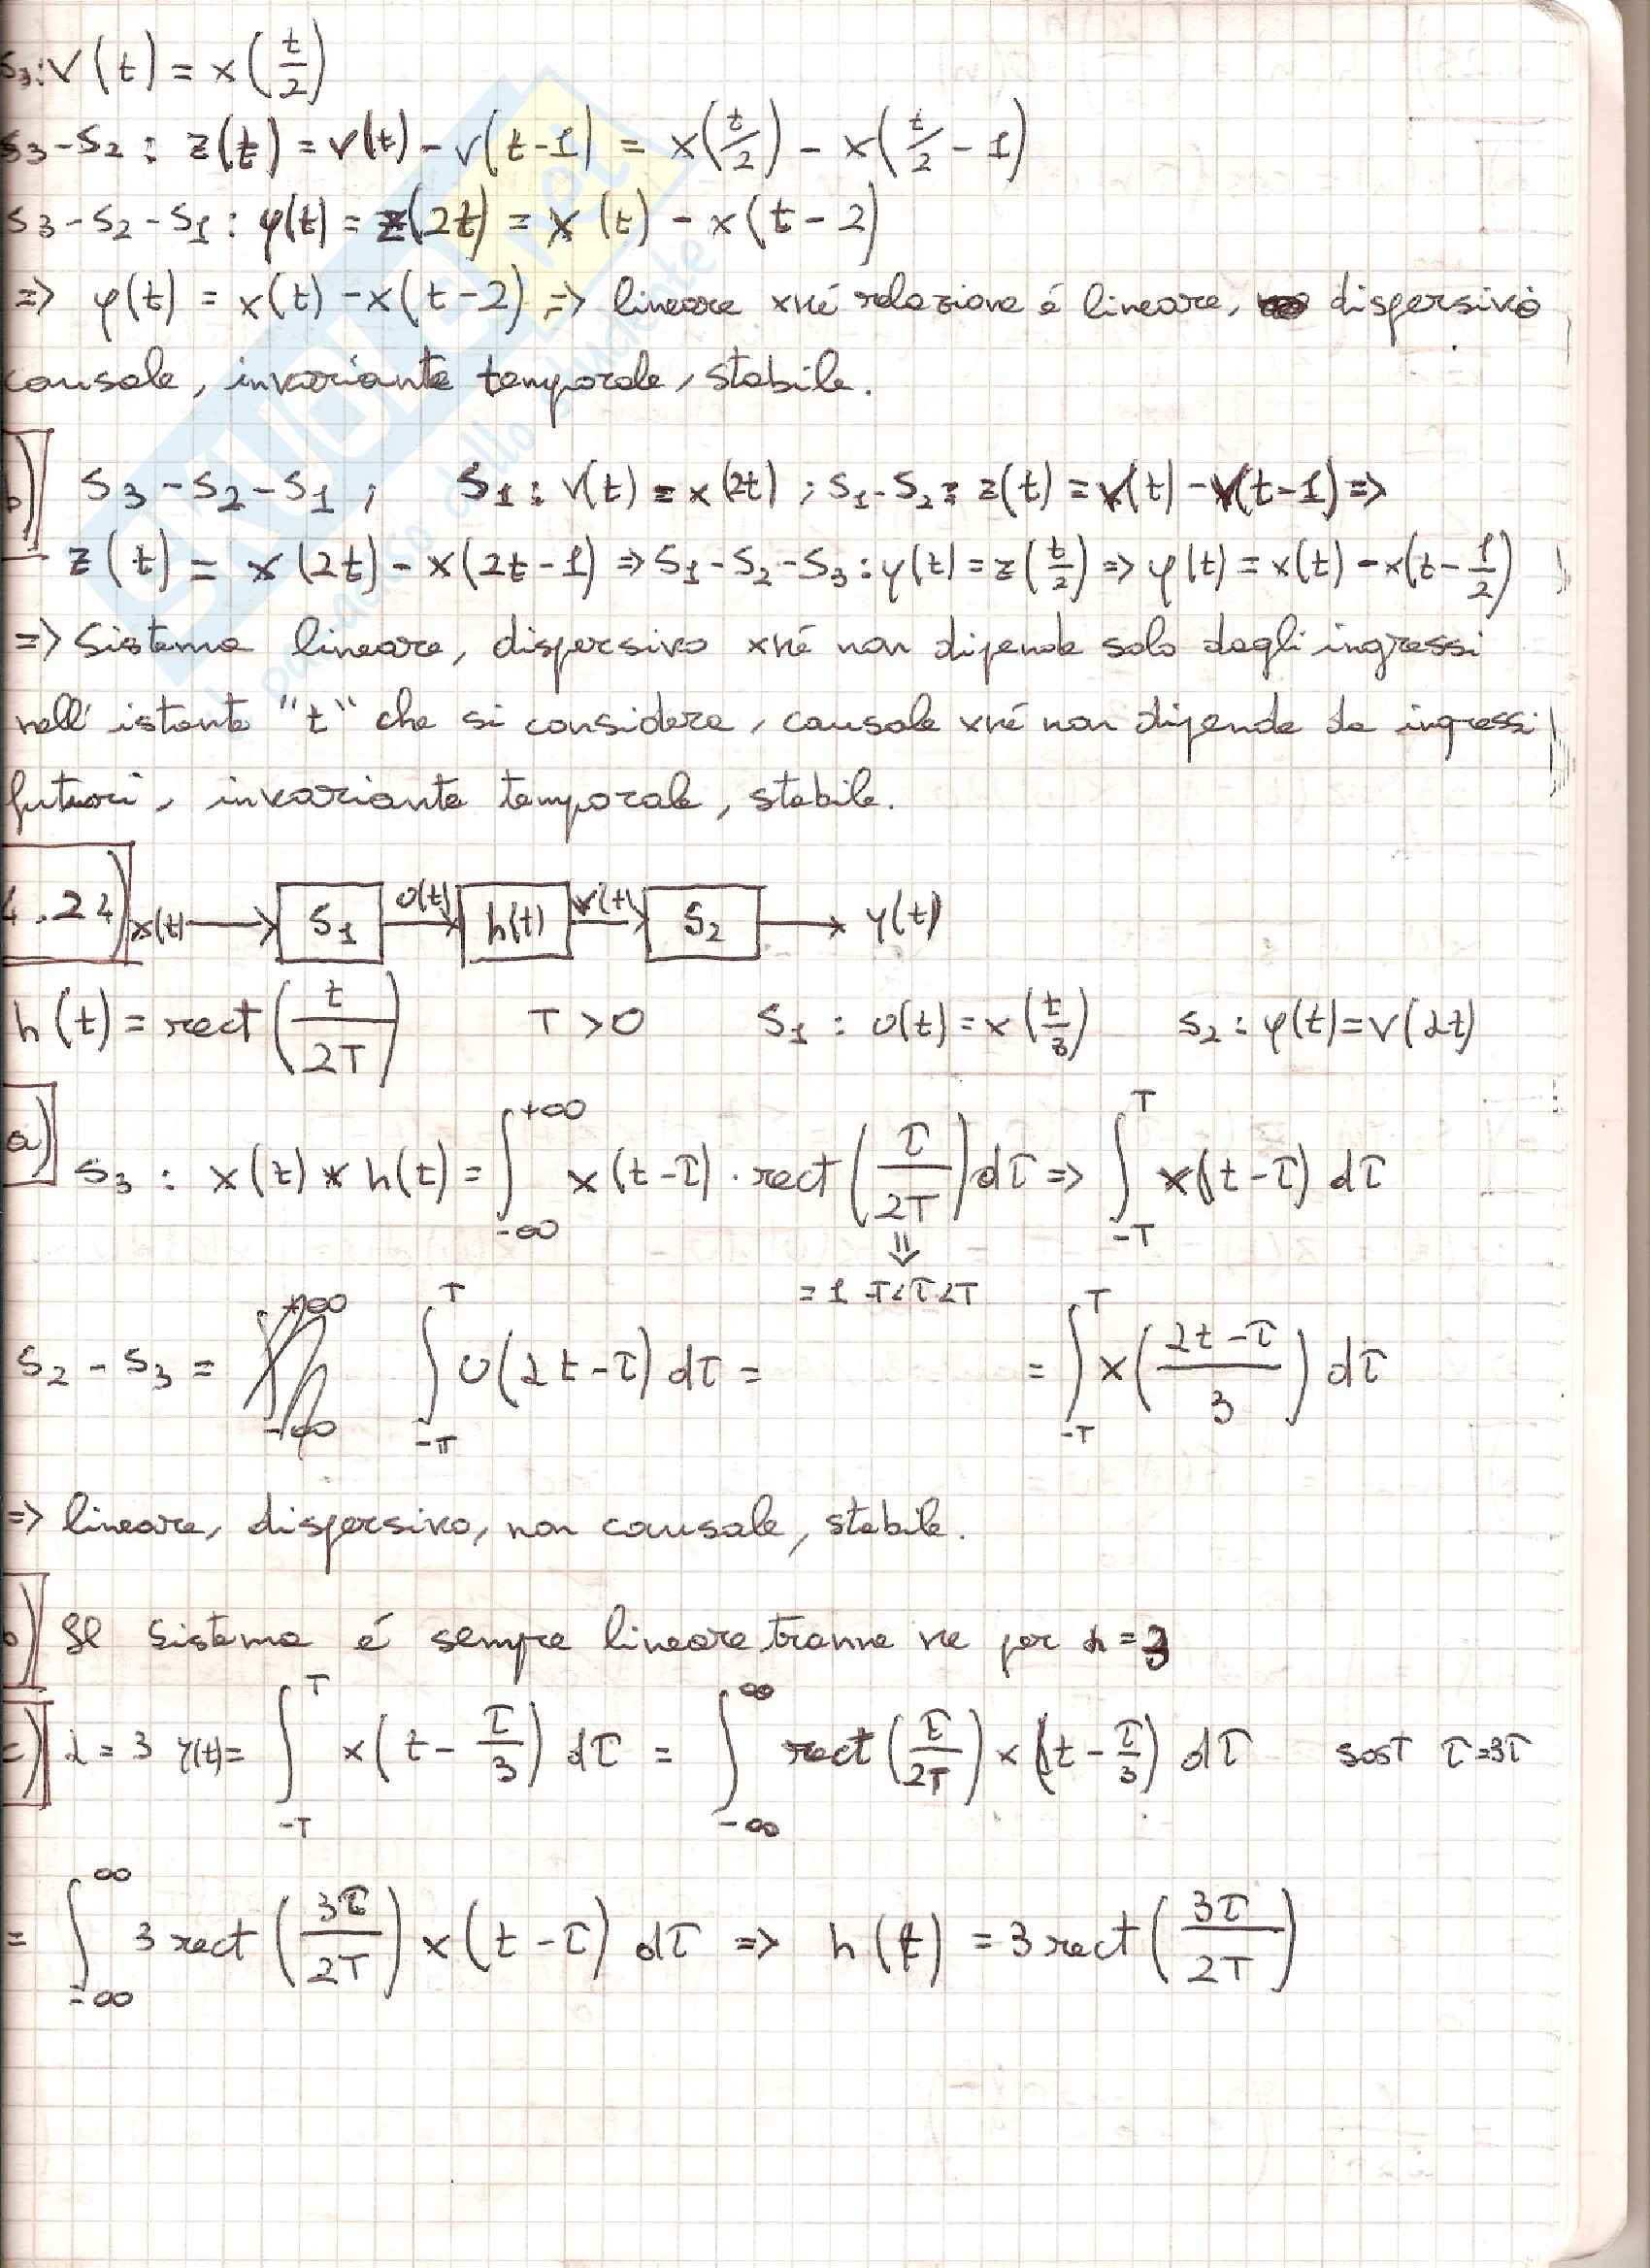 S3: v(t) = x(t/2)
S3-S2: z(t) = v(t) - v(t-1) = x(t/2) - x(t/2 - 1)
S3-S2-S1: y(t) = z(2t) = x(t) - x(t-2)
=> y(t) = x(t) - x(t-2) => lineare xké relazione é lineare, dispersivo
causale, invariante temporale, stabile.
b) S3-S2-S1; S1: v(t) = x(2t); S1-S2: z(t) = v(t) - v(t-1) =>
z(t) = x(2t) - x(2t-1) => S1-S2-S3: y(t) = z(t/2) => y(t) = x(t) - x(t - 1/2)
=> Sistema lineare, dispersivo xké non dipende solo dagli ingressi
nell'istante "t" che si considera, causale xké non dipende da ingressi
futuri, invariante temporale, stabile.
4.24) x(t) → S1 U(t) → h(t) v(t) → S2 → y(t)
h(t) = rect(t/2T) T>0 S1: U(t) = x(t/3) S2: y(t) = v(2t)
a) S3: x(t) * h(t) = ∫_{-∞}^{+∞} x(t-τ) · rect(τ/2T) dτ => ∫_{-T}^{T} x(t-τ) dτ
⇓
= 1 -T<τ<T
S2-S3 = ∫_{-T}^{T} U(2t-τ) dτ = = ∫_{-T}^{T} x((2t-τ)/3) dτ
=> lineare, dispersivo, non causale, stabile.
b) Il sistema é sempre lineare tranne ke per = 3
c) = 3 y(t) = ∫_{-T}^{T} x(t - τ/3) dτ = ∫_{-∞}^{∞} rect(τ/2T) x(t - τ/3) dτ sost τ=3τ
= ∫_{-∞}^{∞} 3 rect(3τ/2T) x(t-τ) dτ => h(t) = 3 rect(3τ/2T)
SKUOLA.net
paradiso dello studente